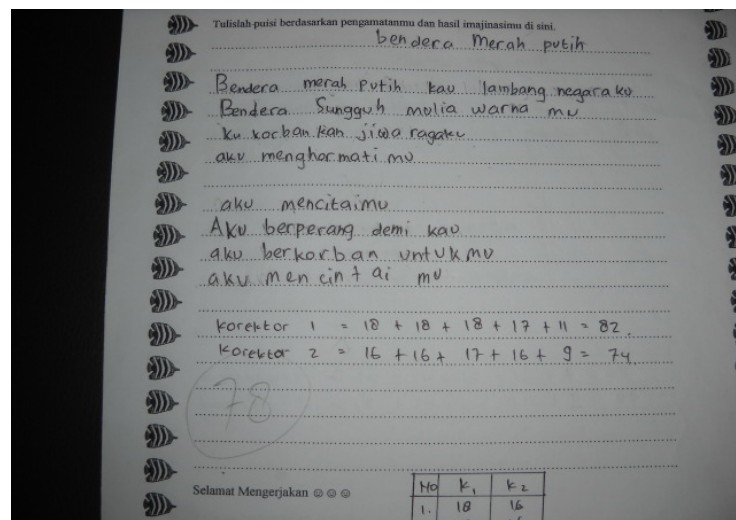 Tulislah puisi berdasarkan pengamatanmu dan hasil imajinasimu di sini.
bendera Merah putih
Bendera merah Putih kau lambang negaraku
Bendera Sungguh mulia warna mu
Ku korban kan jiwa ragaku
aku menghormati mu
aku mencitaimu
Aku berperang demi kau
aku berkorban untukmu
aku men cint ai mu
Korektor 1 = 18 + 18 + 18 + 17 + 11 = 82.
Korektor 2 = 16 + 16 + 17 + 16 + 9 = 74
78
Selamat Mengerjakan ☺ ☺ ☺
No K1 K2
1. 18 16